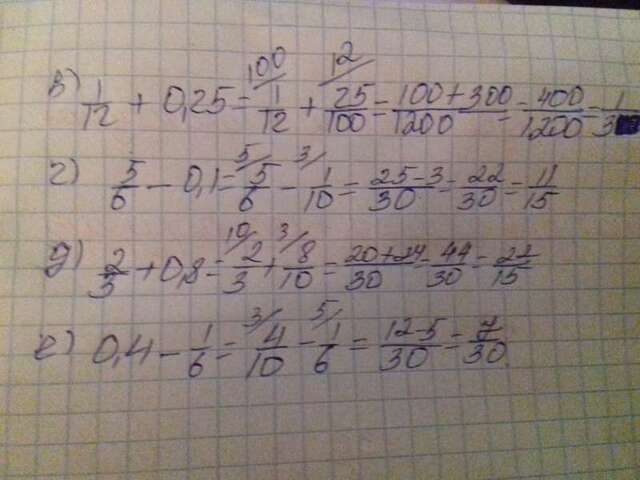 в) 1/12 + 0,25 = 1/12 (100/ + 25/100 (12/ = 100+300/1200 = 400/1200 = 1/3
г) 5/6 - 0,1 = 5/6 (5/ - 1/10 (3/ = 25-3/30 = 22/30 = 11/15
д) 2/3 + 0,8 = 2/3 (10/ + 8/10 (3/ = 20+24/30 = 44/30 = 22/15
е) 0,4 - 1/6 = 4/10 (3/ - 1/6 (5/ = 12-5/30 = 7/30